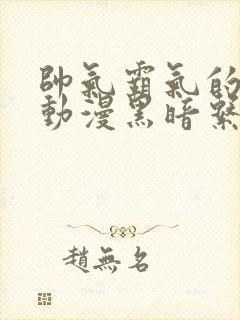 帥氣霸氣的
動漫黑暗繫
趙無名